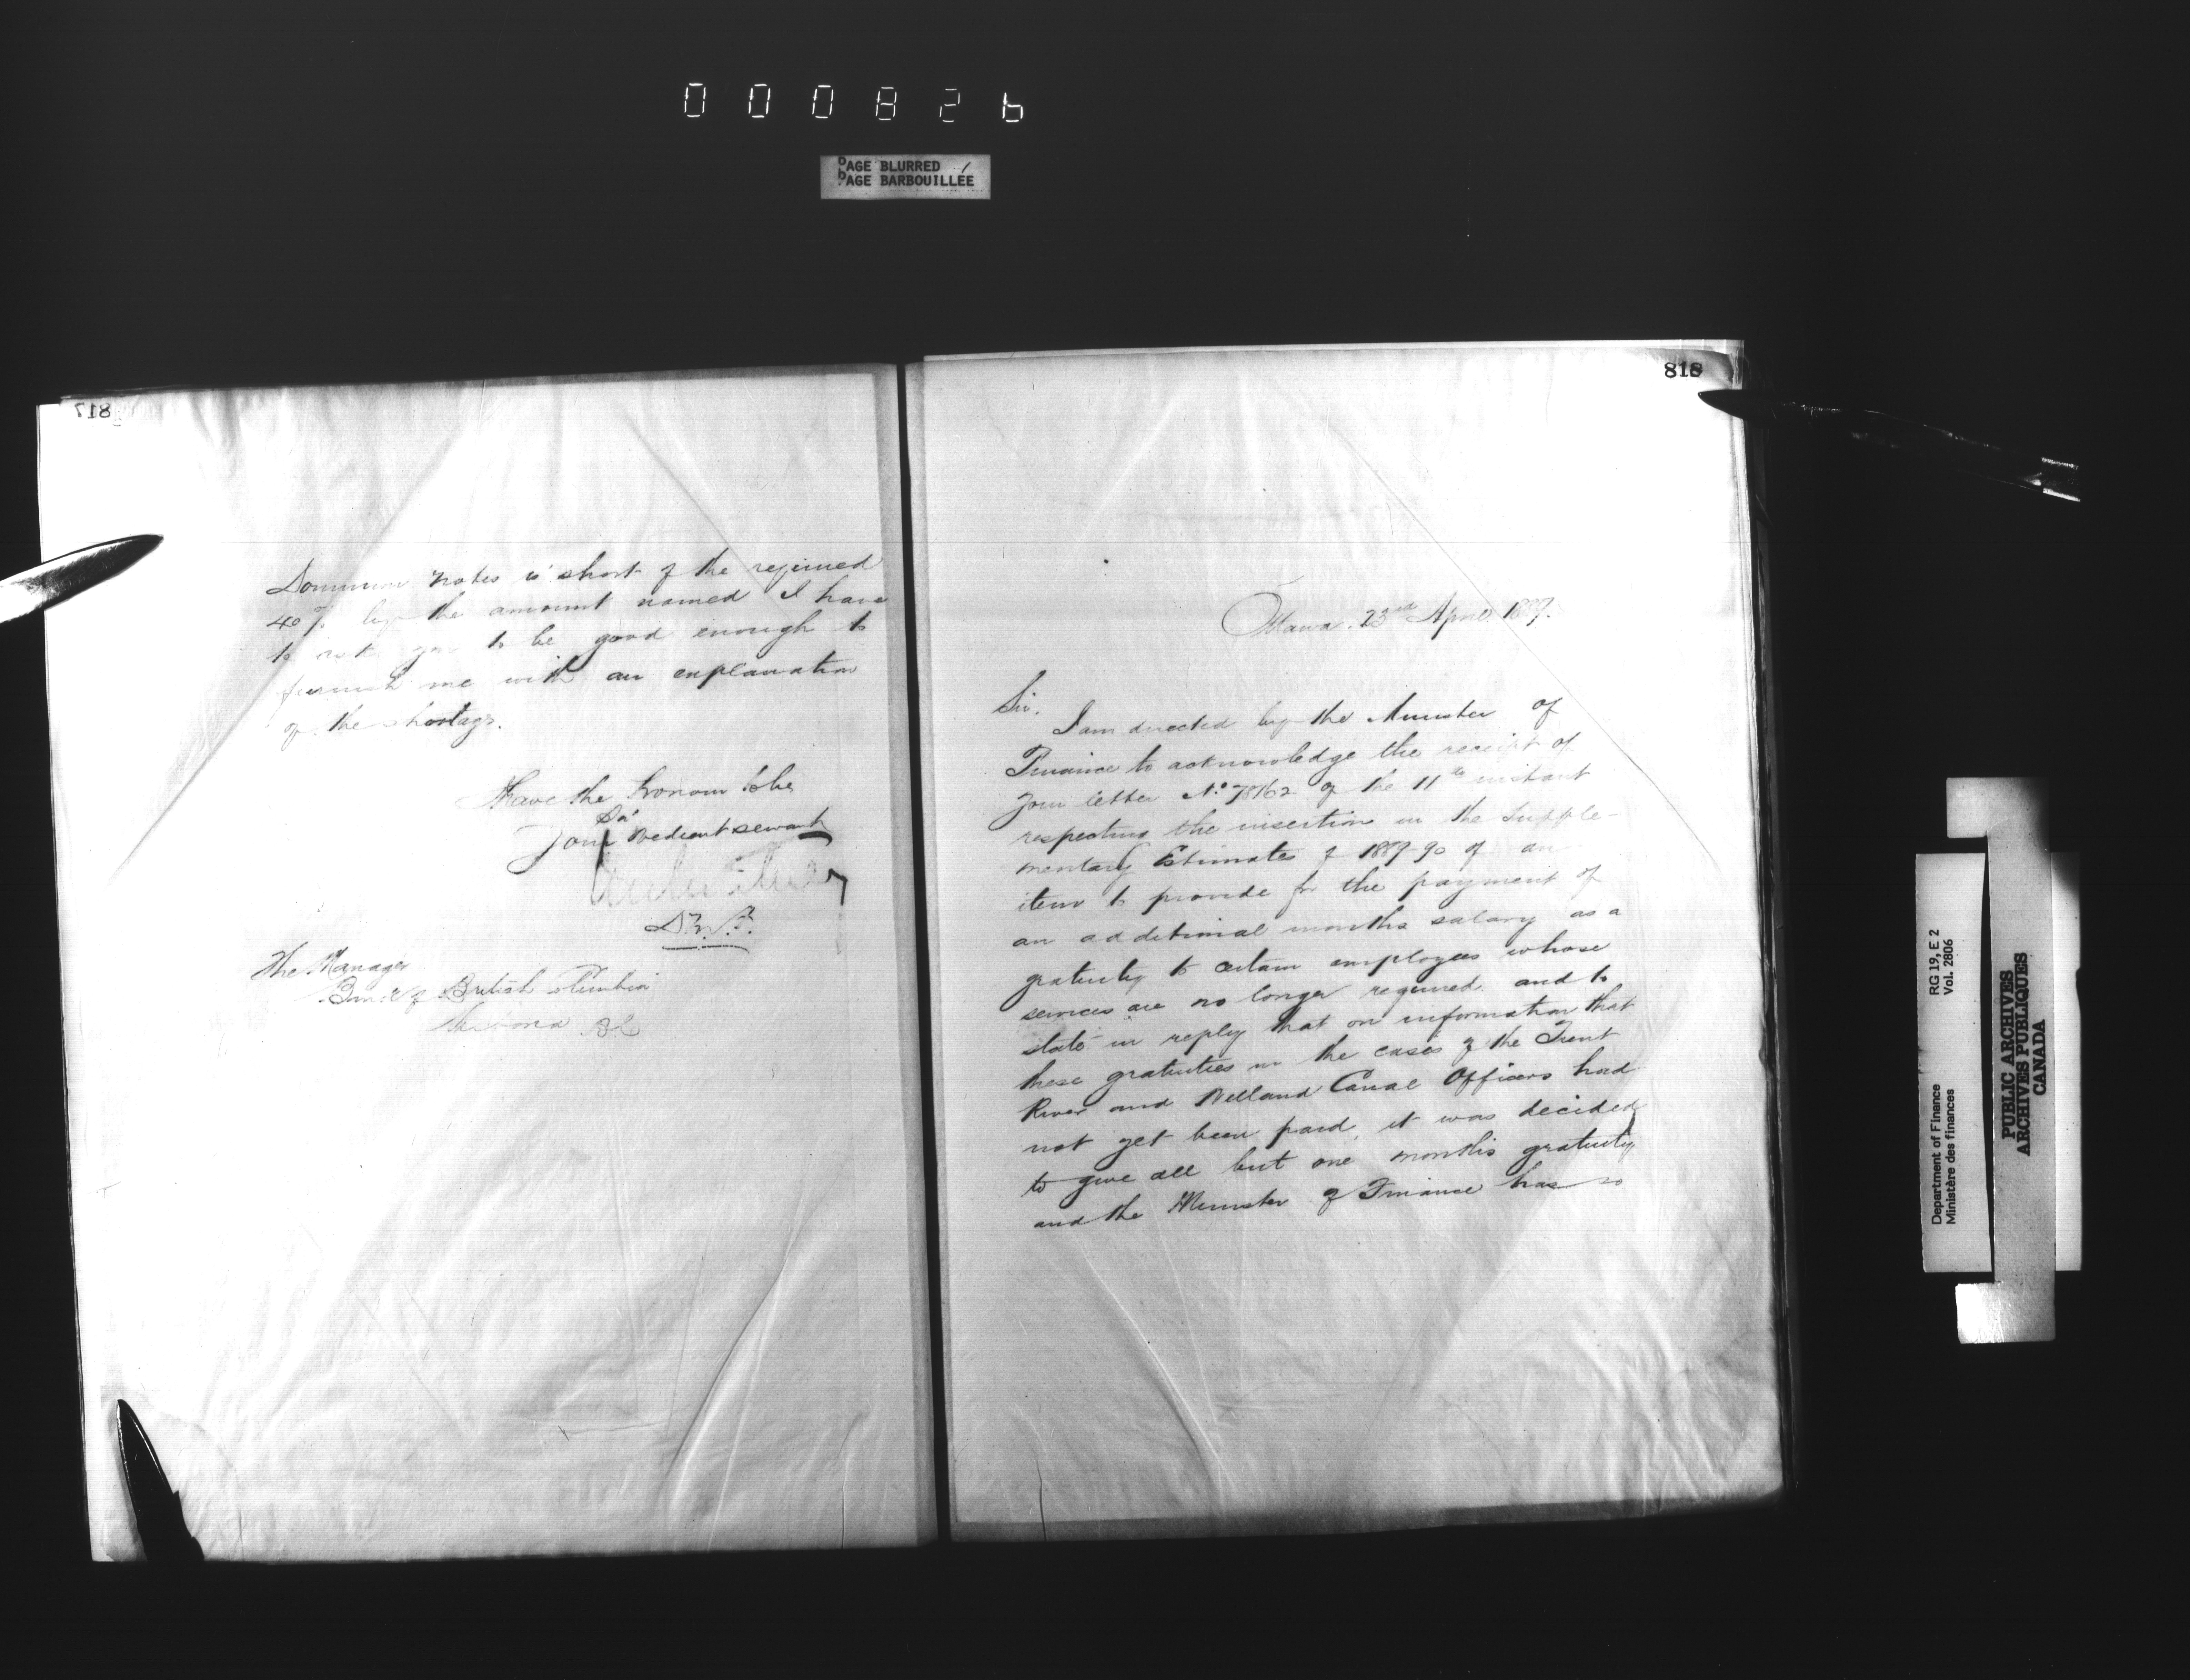 000826
PAGE BLURRED
PAGE BARBOUILLÉE
817
Dominion notes is short of the required
40% by the amount named I have
to ask you to be good enough to
furnish me with an explanation
of the shortage.
I have the honour to be
Sir
Your obedient servant
D.M.F.
The Manager
Bank of British Columbia
Victoria B.C
818
Ottawa. 23rd April 1889.
Sir.
I am directed by the Minister of
Finance to acknowledge the receipt of
your letter No. 78162 of the 11th instant
respecting the insertion in the Supple-
mentary Estimates of 1889-90 of an
item to provide for the payment of
an additional months salary as a
gratuity to certain employees whose
services are no longer required and to
state in reply that on information that
these gratuities in the cases of the Trent
River and Welland Canal Officers had
not yet been paid, it was decided
to give all but one months gratuity
and the Minister of Finance has so
Department of Finance
Ministère des finances
RG 19, E 2
Vol. 2806
PUBLIC ARCHIVES
ARCHIVES PUBLIQUES
CANADA